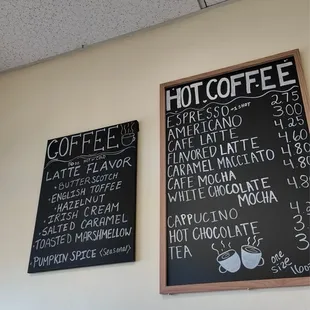 COFFEE
LATTE FLAVOR
• BUTTERSCOTCH
• ENGLISH TOFFEE
• HAZELNUT
• IRISH CREAM
• SALTED CARAMEL
• TOASTED MARSHMALLOW
• PUMPKIN SPICE (Seasonal)
HOT COFFEE
2.75
ESPRESSO +1 SHOT 3.00
AMERICANO 4.25
CAFE LATTE 4.60
FLAVORED LATTE 4.80
CARAMEL MACCIATO 4.80
CAFE MOCHA
WHITE CHOCOLATE MOCHA
CAPPUCINO
HOT CHOCOLATE
TEA
one
size